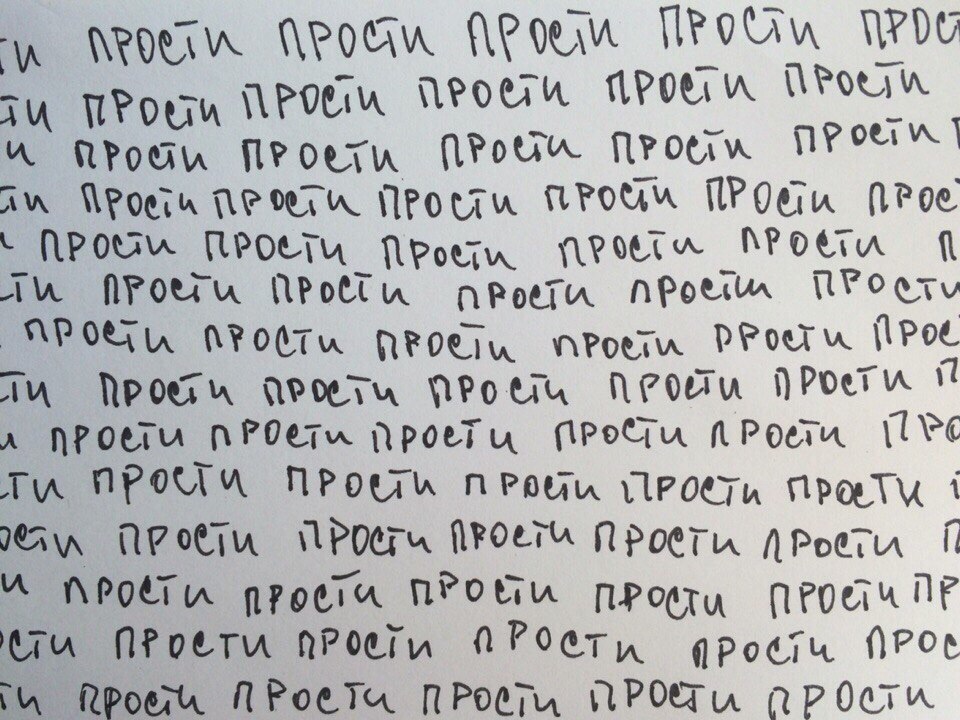 ти прости прости прости прости прост
сти прости прости прости прости прости
и прости прости прости прости прости п
сти прости прости прости прости прости прос
и прости прости прости прости прости п
сти прости прости прости прости прости
прости прости прости прости прости прос
сти прости прости прости прости прости п
и прости прости прости прости прости про
сти прости прости прости прости прости п
ости прости прости прости прости прости п
и прости прости прости прости прости пр
ости прости прости прости прости прос
сти прости прости прости прости прости